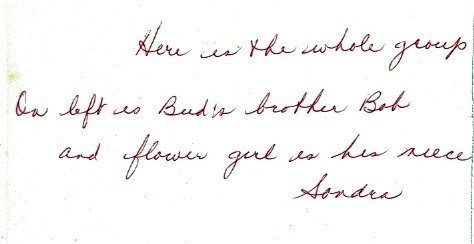 Here is the whole group
On left is Bud's brother Bob
and flower girl is his niece
Sondra